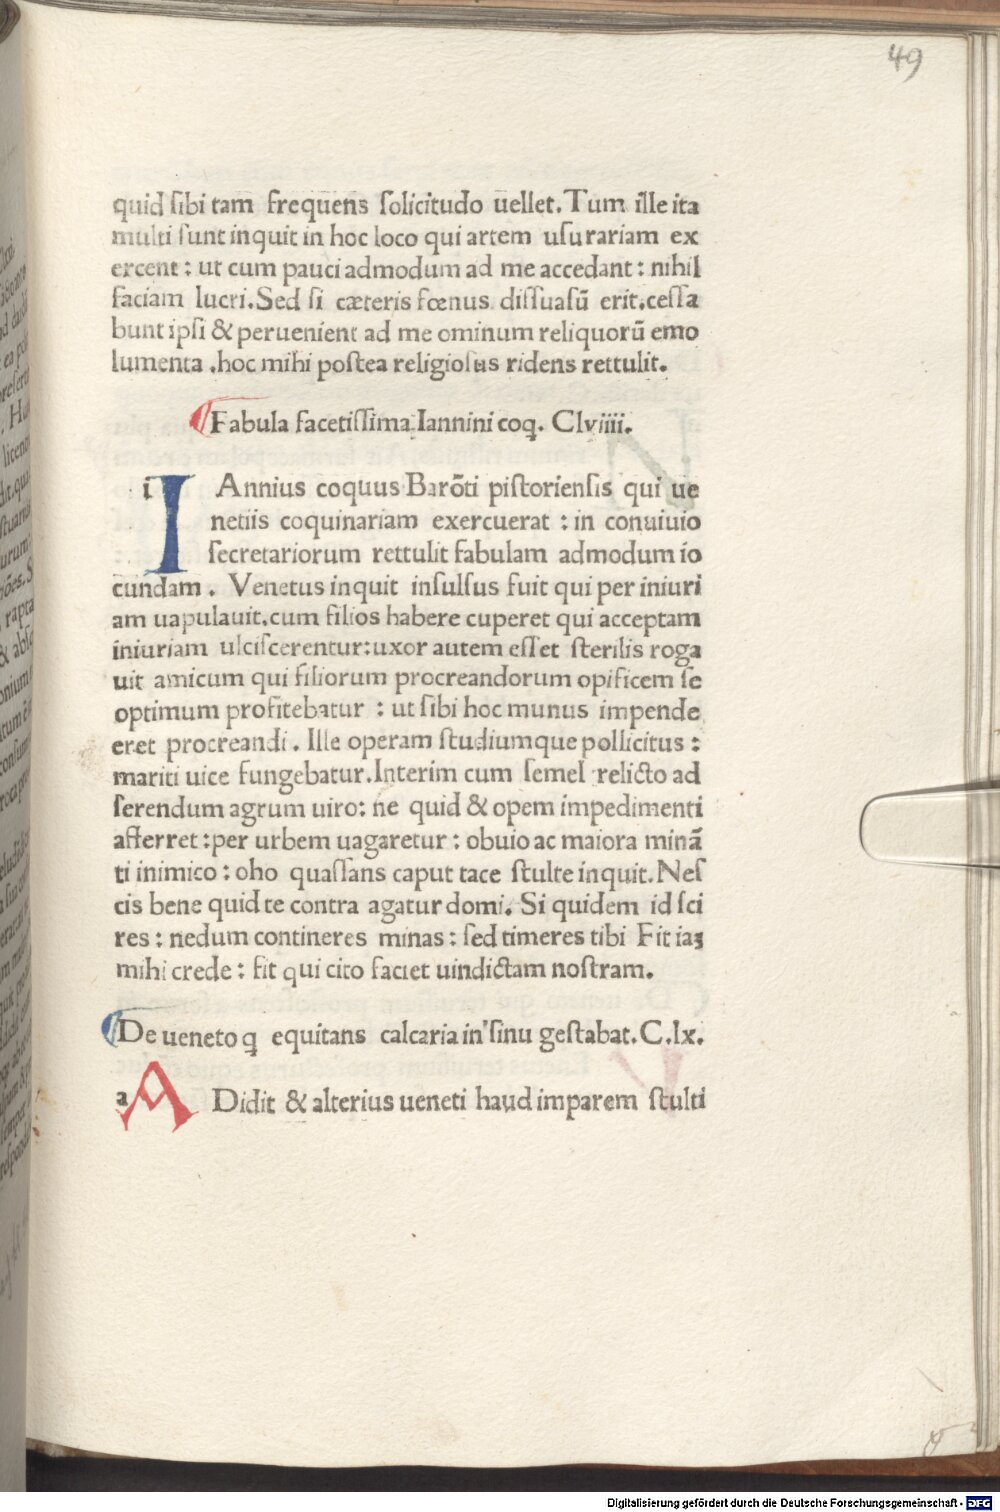 49
quid sibi tam frequens solicitudo uellet. Tum ille ita
multi sunt inquit in hoc loco qui artem usurariam ex
ercent : ut cum pauci admodum ad me accedant : nihil
faciam lucri. Sed si cæteris fœnus dissuasū erit, cessa
bunt ipsi & peruenient ad me ominum reliquorū emo
lumenta .hoc mihi postea religiosus ridens rettulit.
Fabula facetissima Iannini coq. Clviiii.
i I Annius coquus Barōti pistoriensis qui ue
netiis coquinariam exercuerat : in conuiuio
secretariorum rettulit fabulam admodum io
cundam . Venetus inquit insulsus fuit qui per iniuri
am uapulauit. cum filios habere cuperet qui acceptam
iniuriam ulciscerentur: uxor autem esset sterilis roga
uit amicum qui filiorum procreandorum opificem se
optimum profitebatur : ut sibi hoc munus impende
eret procreandi . Ille operam studiumque pollicitus :
mariti uice fungebatur. Interim cum semel relicto ad
serendum agrum uiro: ne quid & opem impedimenti
afferret : per urbem uagaretur : obuio ac maiora minā
ti inimico : oho quassans caput tace stulte inquit. Nes
cis bene quid te contra agatur domi. Si quidem id sci
res : nedum contineres minas : sed timeres tibi Fit iaꝫ
mihi crede : fit qui cito faciet uindictam nostram.
De ueneto q equitans calcaria in sinu gestabat. C.lx.
a A Didit & alterius ueneti haud imparem stulti
Digitalisierung gefördert durch die Deutsche Forschungsgemeinschaft - DFG